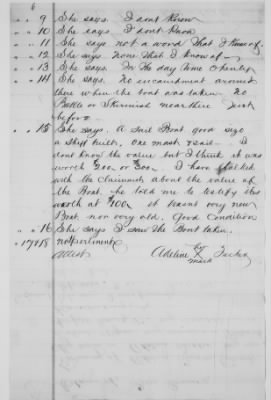 6
" " 9 She says. I dont Know
" " 10 She says I dont Know
" " 11 She says not a word That I know of.
" " 12 She says none That I know of
" " 13 She says. In the day time openly
" " 14 She says. no encampment around
there when the boat was taken. no
Battle or Skirmish near there Just
before
" " 15 She says. A Sail Boat good size
a Ship built, one mast
dont know the value but I think it was
worth 200 or 300. I have talked
with the Claimants about the value of
the Boat. he told me to testify it is
worth at $100. it wasnt very new
Boat nor very old. Good Condition
" " 16 She says I saw the Boat taken.
" " 17 & 18 not pertinent
Attest Adeline X Tucker
mark